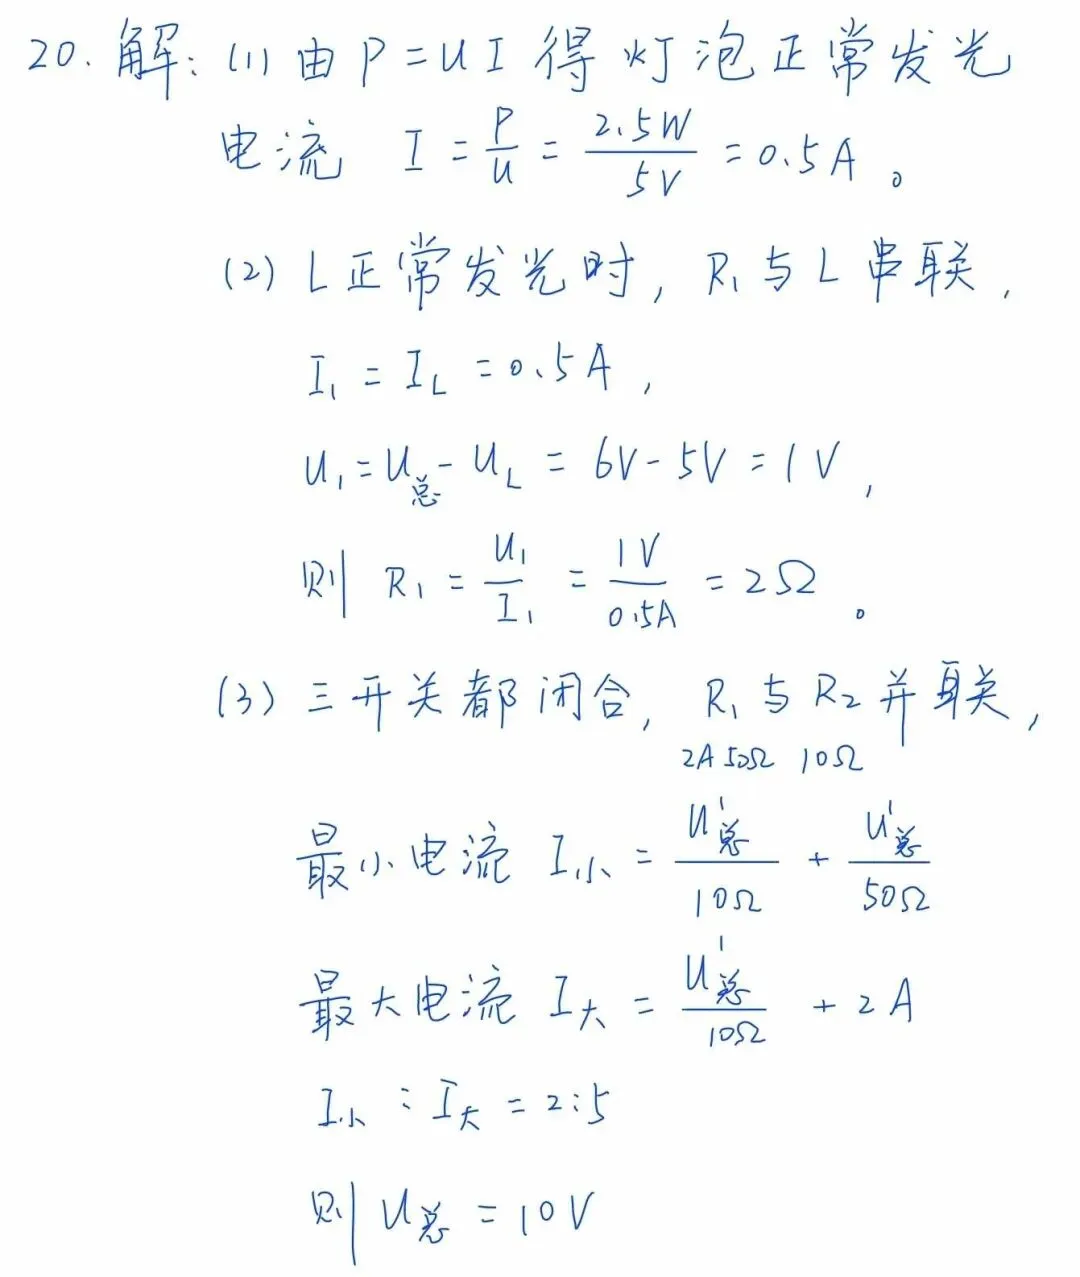 20. 解: (1) 由 P = UI 得 灯泡正常发光
电流 I = P/U = 2.5W/5V = 0.5A 。
(2) L正常发光时, R₁与L串联,
I₁ = I_L = 0.5A,
U₁ = U总 - U_L = 6V - 5V = 1V,
则 R₁ = U₁/I₁ = 1V/0.5A = 2Ω 。
(3) 三开关都闭合, R₁与R₂并联,
2A 50Ω 10Ω
最小电流 I小 = U'总/10Ω + U'总/50Ω
最大电流 I大 = U'总/10Ω + 2A
I小 : I大 = 2:5
则 U总 = 10V